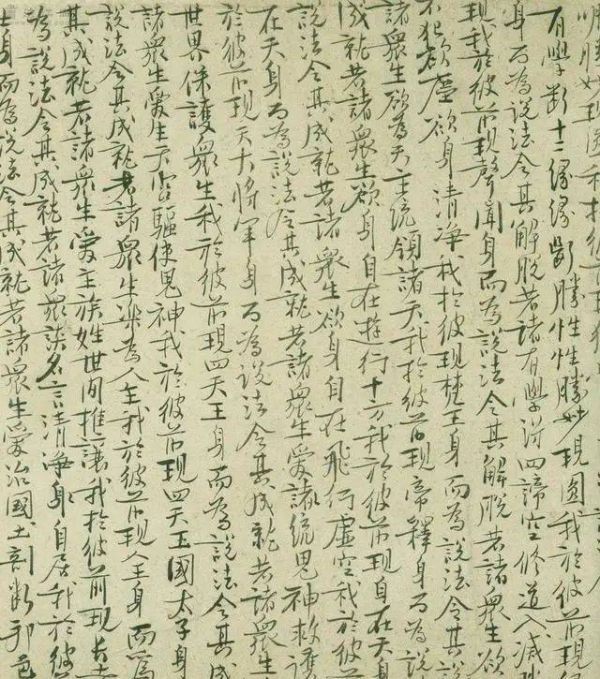 明勝妙現圓我於彼前現
有學斷十二緣緣斷勝性性勝妙現圓我於彼前現
身而為說法令其解脫若諸有學得四諦空修道入滅
現我於彼前現聲聞身而為說法令其解脫若諸衆生欲
不犯欲塵欲身清淨我於彼現梵王身而為說法令其
諸衆生欲為天主統領諸天我於彼前現帝釋身而為說
成就若諸衆生欲身自在遊行十方我於彼前現自在天
說法令其成就若諸衆生欲身自在飛行虛空我於彼前
在天身而為說法令其成就若諸衆生愛諸統鬼神救護
於彼前現天大將軍身而為說法令其成就若諸衆生
世界保護衆生我於彼前現四天王身而為說法令其成
諸衆生愛生天宮驅使鬼神我於彼前現四天王國太子身
說法令其成就若諸衆生樂為人主我於彼前現人王身而為
其成就若諸衆生愛主族姓世間推讓我於彼前現長者
為說法令其成就若諸衆談名言清淨身自居我於彼
士身而為說法令其成就若諸衆生愛治國土剖斷邦邑